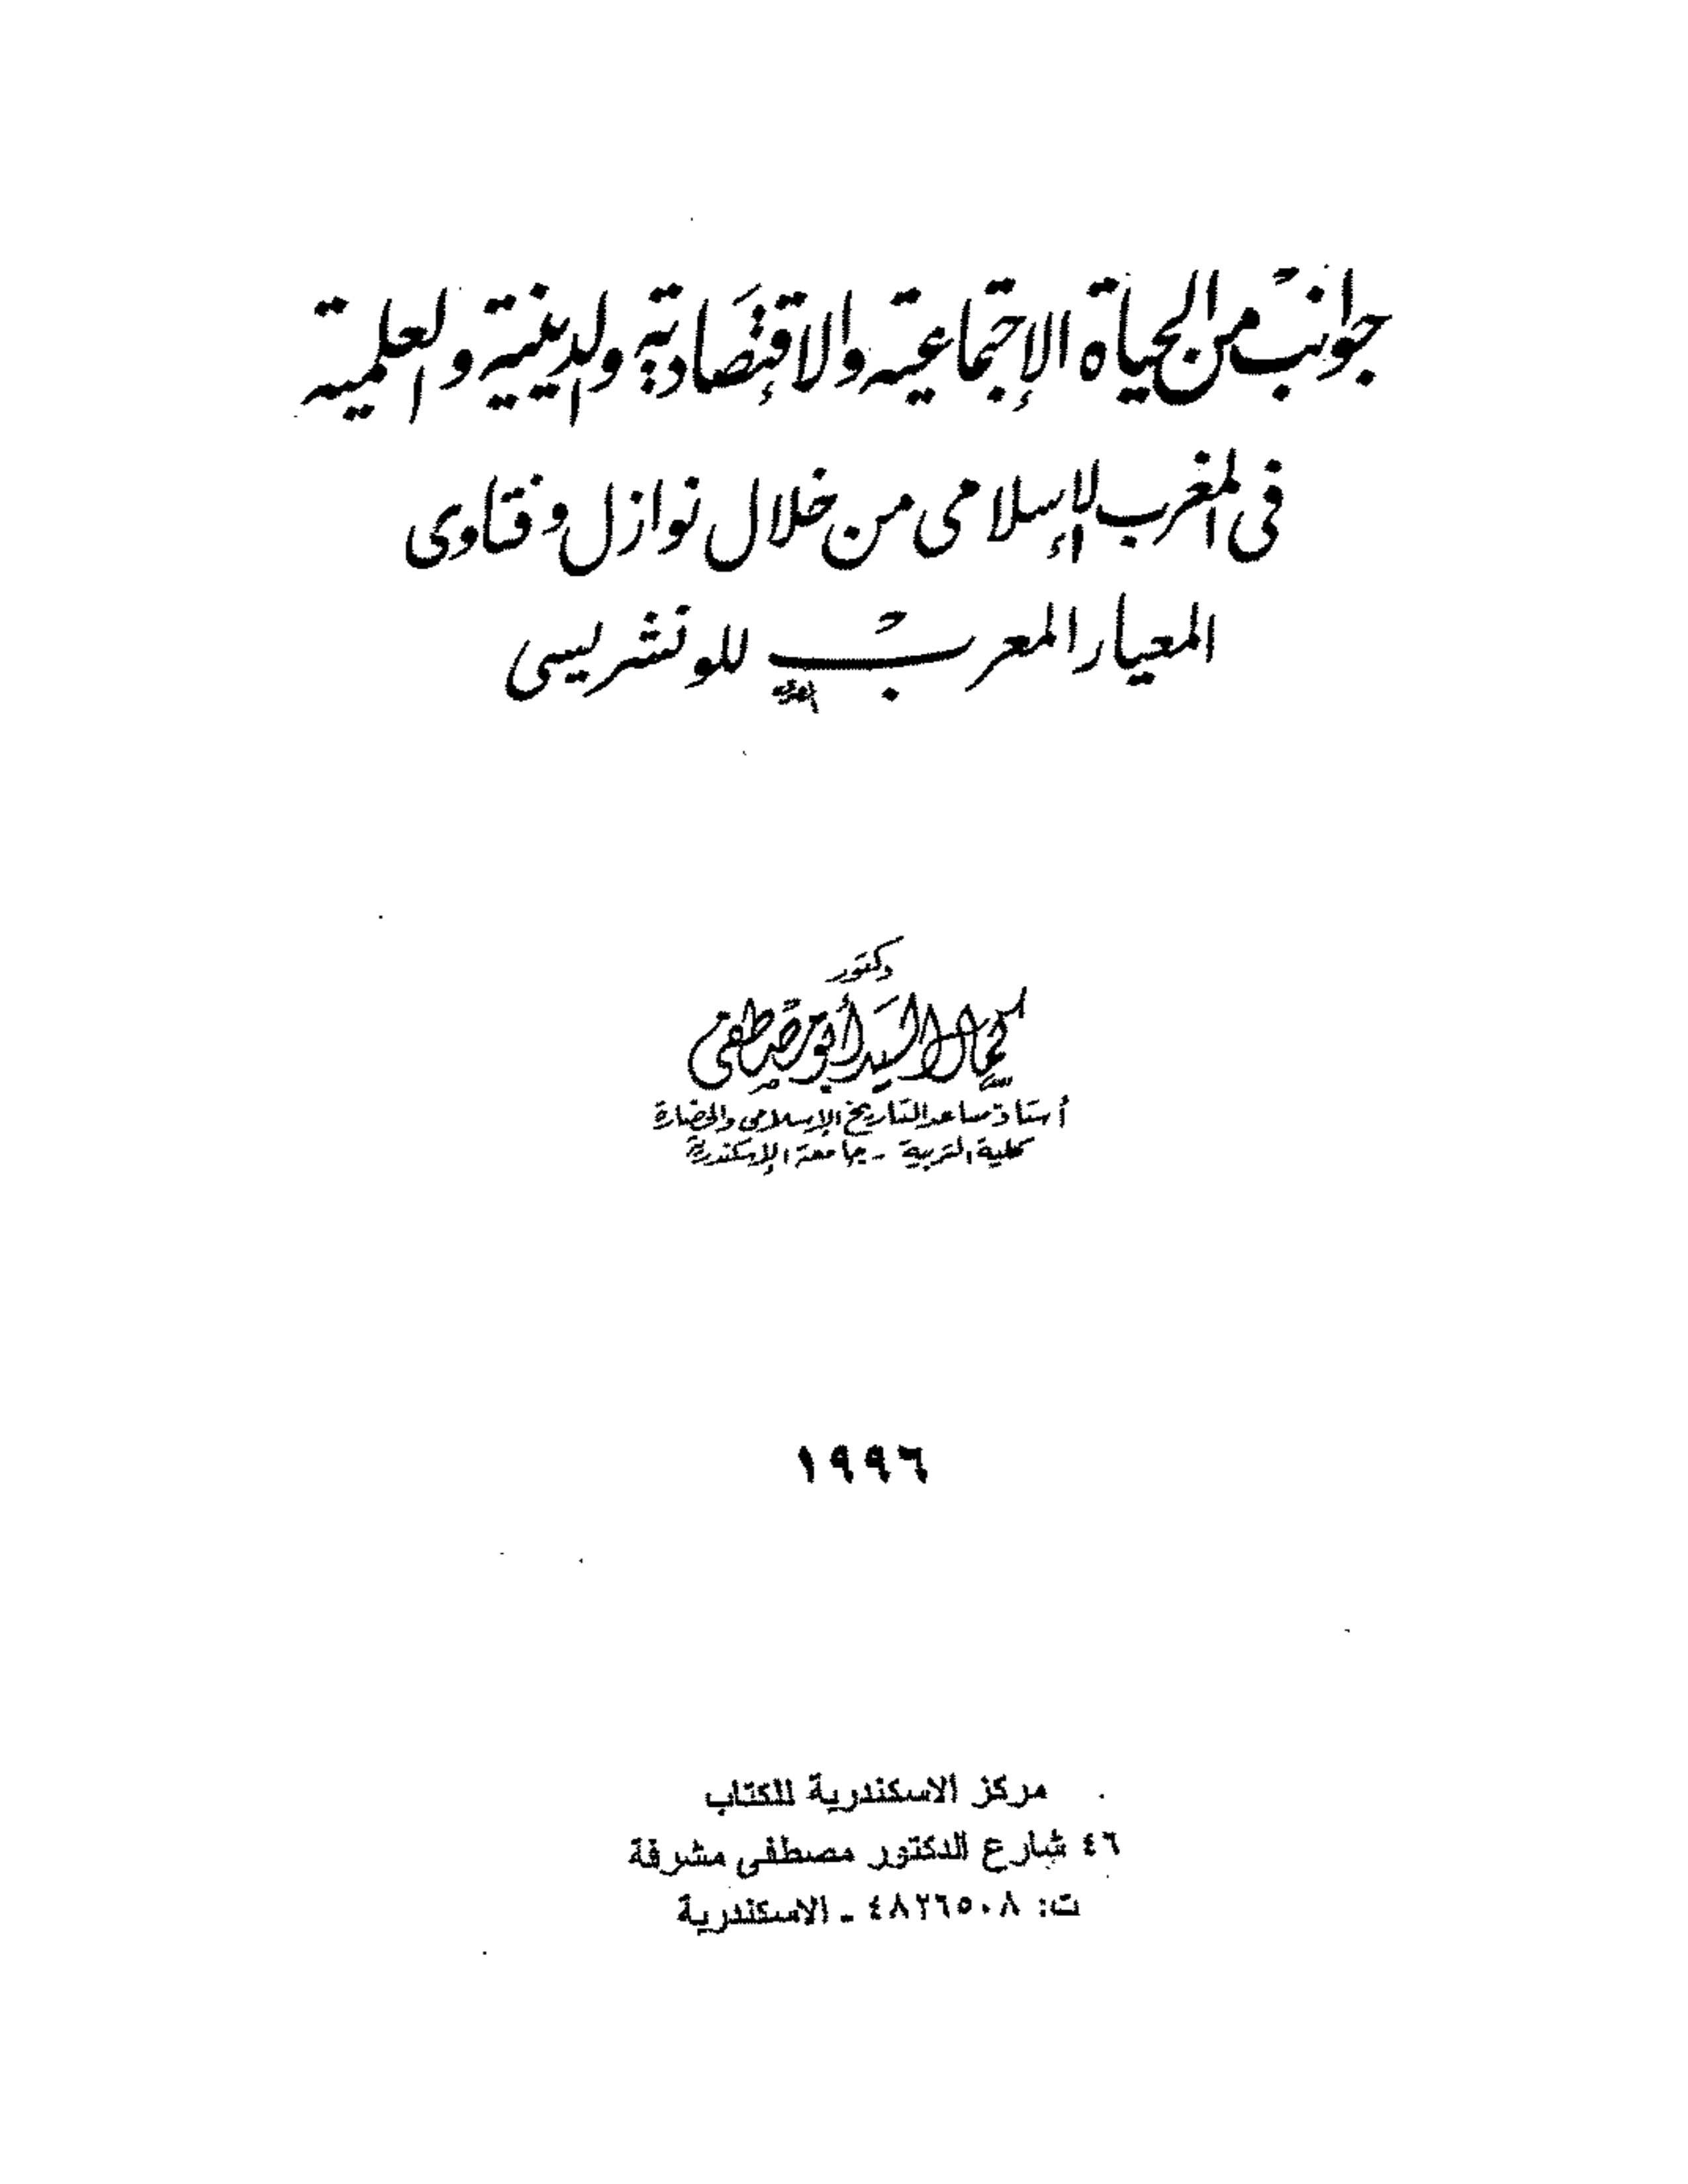 جوانب من الحياة الإجتماعية والإقتصادية والدينية والعلمية
فى المغرب الإسلامى من خلال نوازل وفتاوى
المعيار المعرب للونشريسى
دكتور
كمال السيد أبو مصطفى
أستاذ مساعد التاريخ الإسلامى والحضارة
كلية التربية - جامعة الإسكندرية
١٩٩٦
مركز الاسكندرية للكتاب
٤٦ شارع الدكتور مصطفى مشرفة
ت: ٤٨٢٦٥٠٨ - الاسكندرية